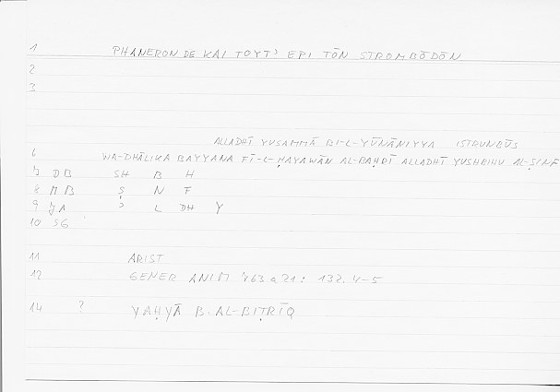 1 PHANERON DE KAI TOYT' EPI TŌN STROMBŌDŌN
2
3
ALLADHĪ YUSAMMĀ BI-L-YŪNĀNIYYA ISṬRUNBŪS
6 WA-DHĀLIKA BAYYANA FĪ-L-ḤAYAWĀN AL-BAḤRĪ ALLADHĪ YUSHBIHU AL-ṢINF
7 DB SH B H
8 MB Ṣ N F
9 JA ʾ L DH Y
10 SG
11 ARIST
12 GENER ANIM 763 a 21: 132. 4-5
14 ? YAḤYĀ B. AL-BIṬRĪQ